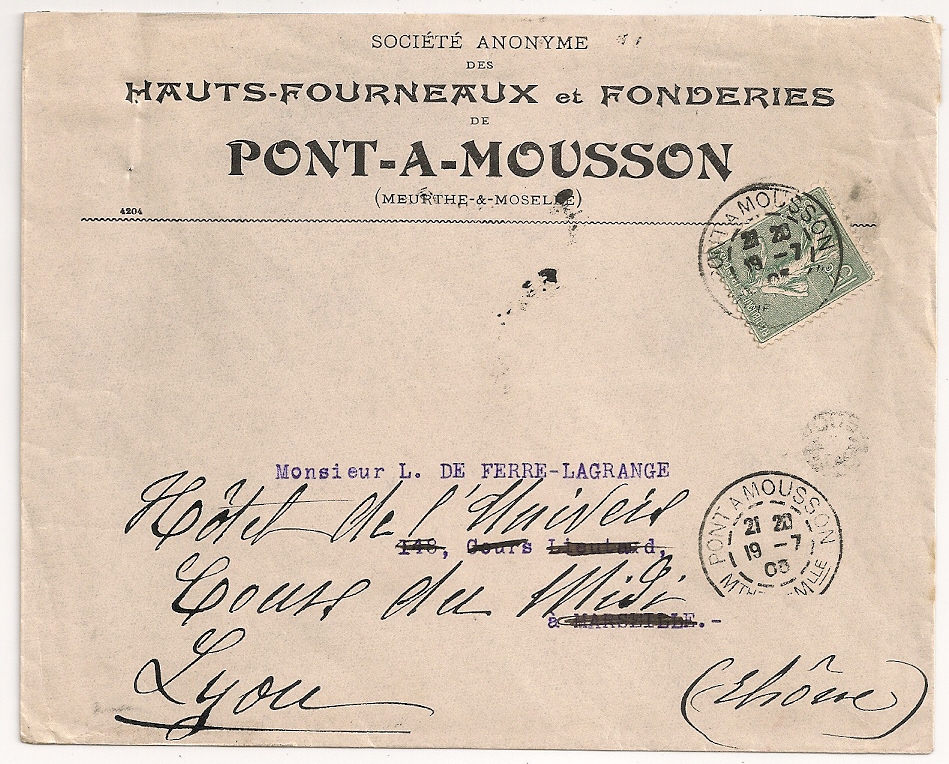 SOCIÉTÉ ANONYME
DES
HAUTS-FOURNEAUX et FONDERIES
DE
PONT-A-MOUSSON
(MEURTHE-&-MOSELLE)
4204
PONT A MOUSSON
21 20
19 -7
Monsieur L. DE FERRE-LAGRANGE
Hôtel de l'Univers
148, Cours Lieutaud,
Cours du Midi
à MARSEILLE.-
Lyon
(Rhône)
PONT A MOUSSON
21 20
19 -7
05